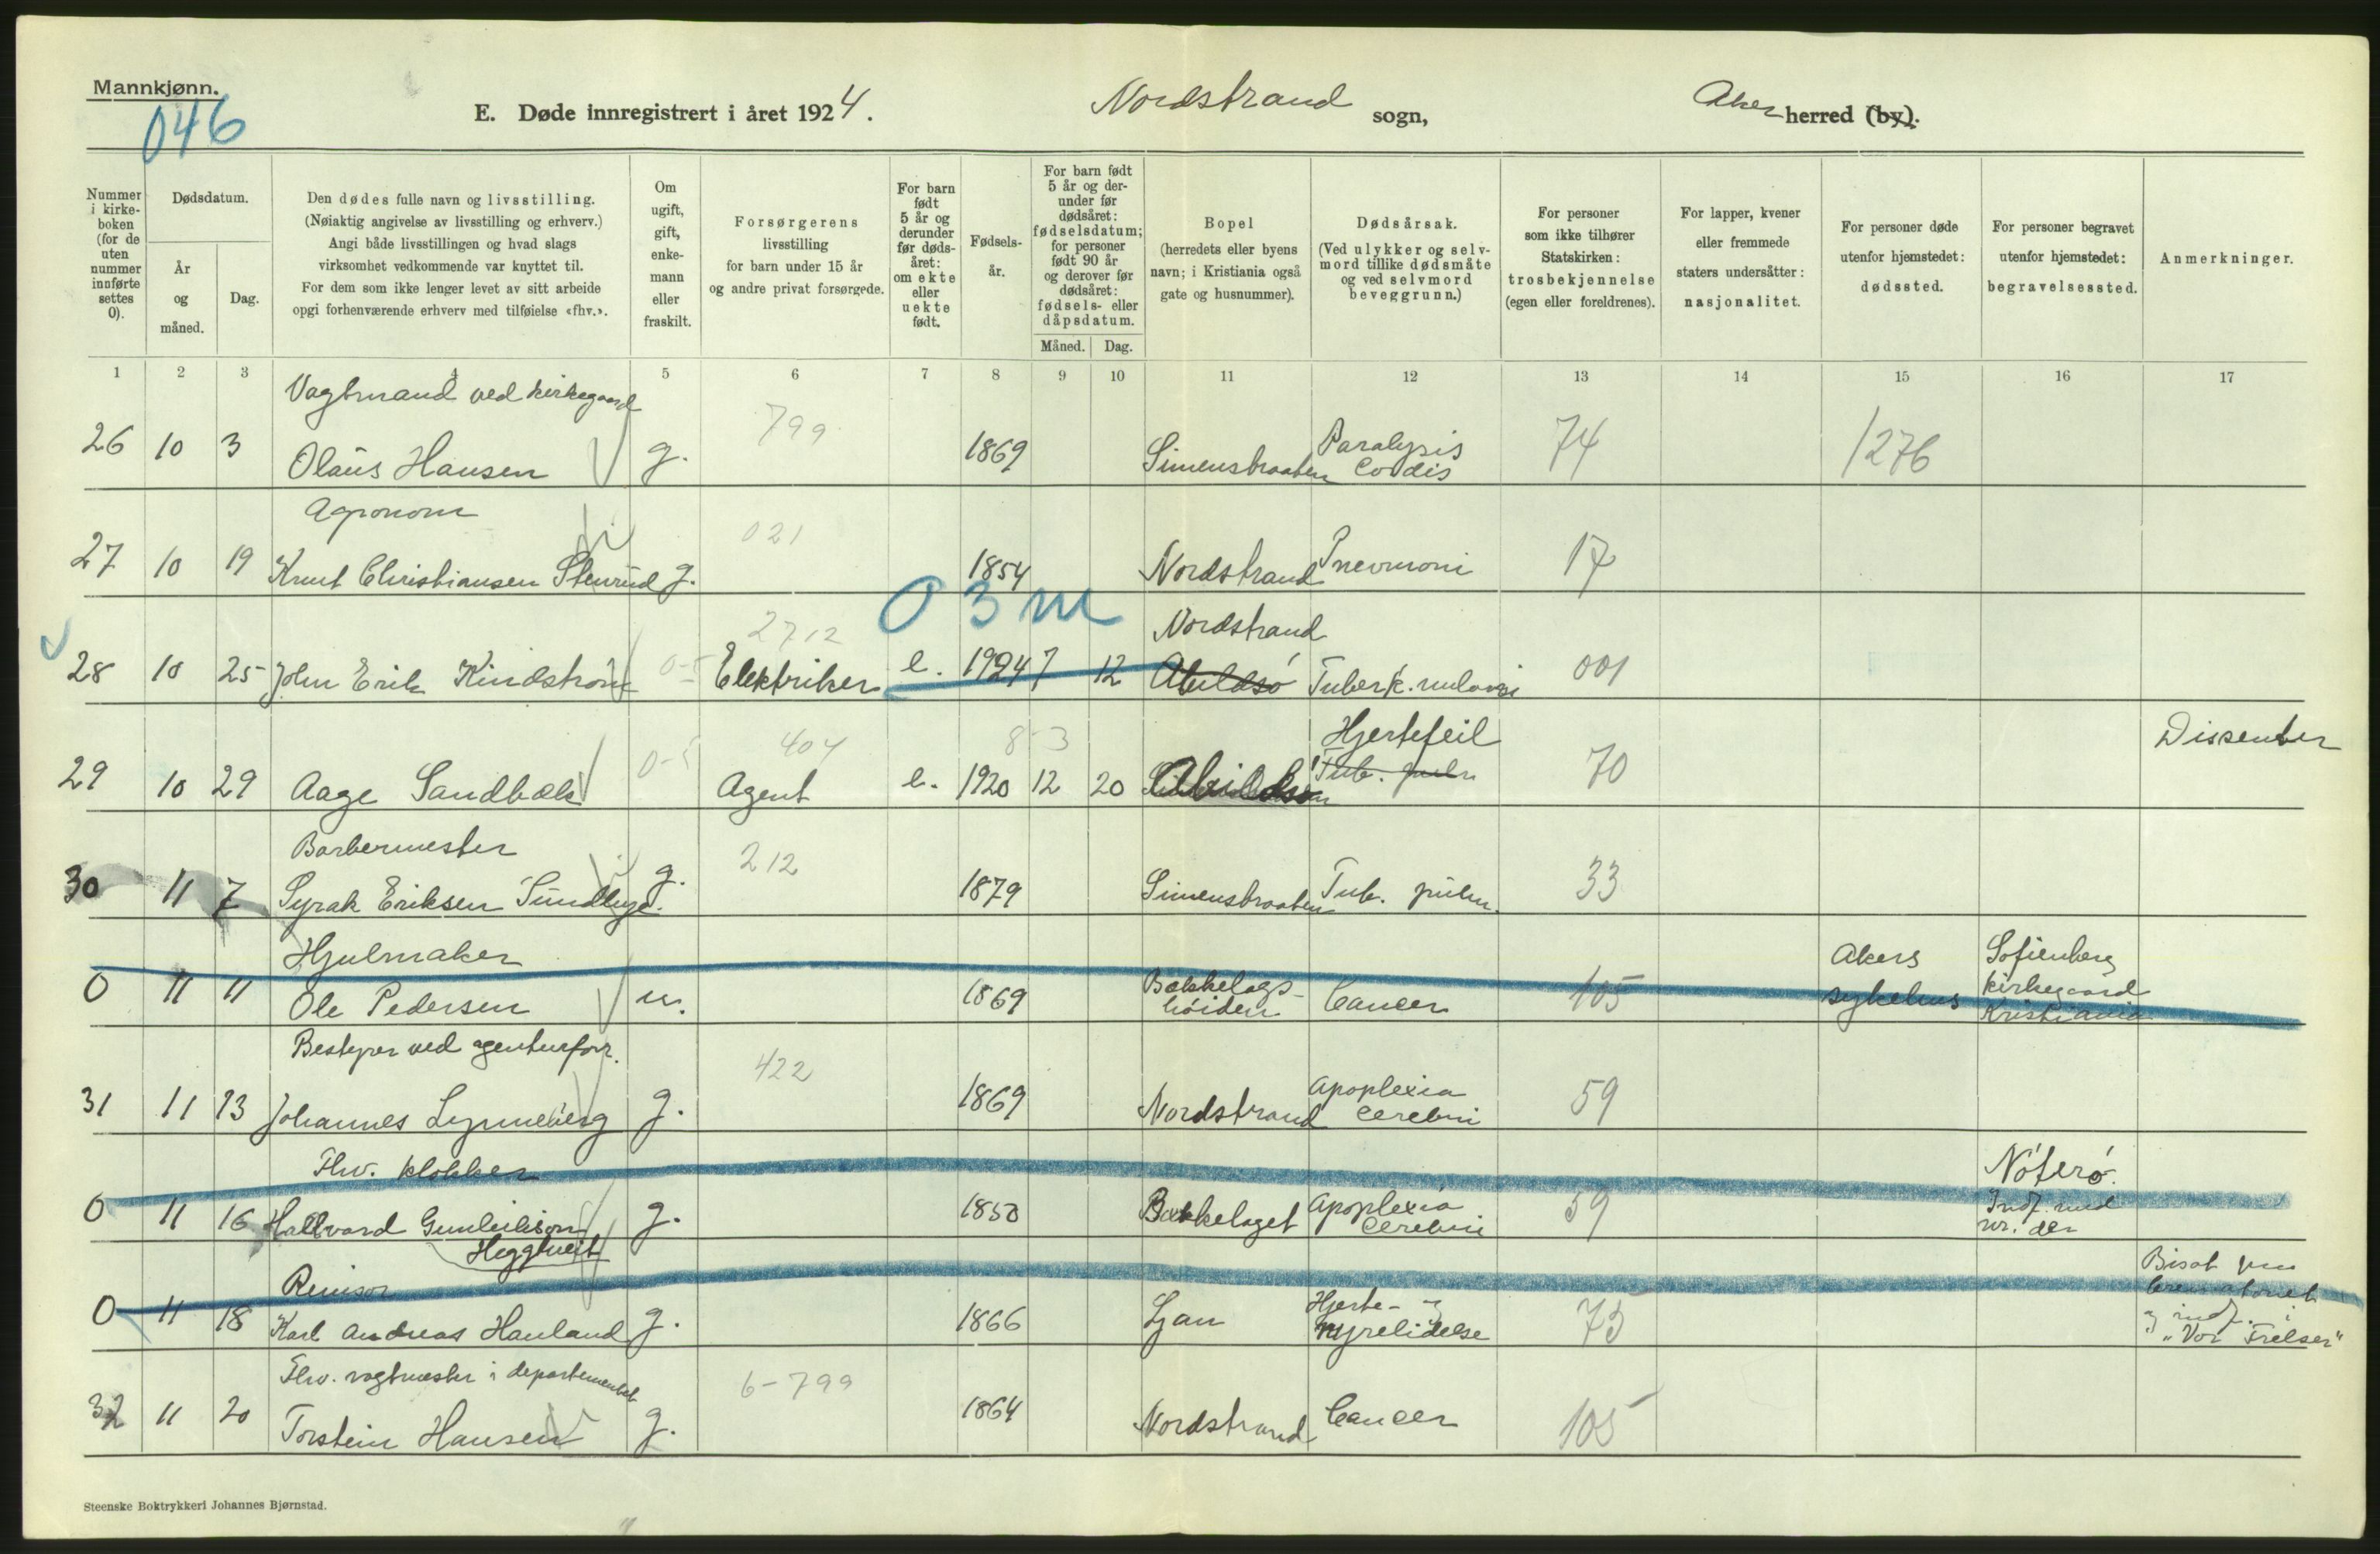 Mannkjønn.
046
E. Døde innregistrert i året 1924.
Nordstrand sogn,
Aker herred (by).
Nummer i kirke-boken (for de uten nummer innførte settes 0).
Dødsdatum.
År og måned.
Dag.
Den dødes fulle navn og livsstilling.
(Nøiaktig angivelse av livsstilling og erhverv.)
Angi både livsstillingen og hvad slags
virksomhet vedkommende var knyttet til.
For dem som ikke lenger levet av sitt arbeide
opgi forhenværende erhverv med tilføielse «fhv.».
Om ugift, gift, enke-mann eller fraskilt.
Forsørgerens
livsstilling
for barn under 15 år
og andre privat forsørgede.
For barn født 5 år og derunder før døds-året: om ekte eller uekte født.
Fødsels-år.
For barn født 5 år og der-under før dødsåret: fødselsdatum; for personer født 90 år og derover før dødsåret: fødsels- eller dåpsdatum.
Måned. Dag.
Bopel
(herredets eller byens
navn; i Kristiania også
gate og husnummer).
Dødsårsak.
(Ved ulykker og selv-
mord tillike dødsmåte
og ved selvmord
beveggrunn.)
For personer
som ikke tilhører
Statskirken:
trosbekjennelse
(egen eller foreldrenes).
For lapper, kvener
eller fremmede
staters undersåtter:
nasjonalitet.
For personer døde
utenfor hjemstedet:
dødssted.
For personer begravet
utenfor hjemstedet:
begravelsessted.
Anmerkninger.
1 2 3 4 5 6 7 8 9 10 11 12 13 14 15 16 17
Vagtmand ved kirkegaard
799
26 10 3 Olaus Hansen g. 1869 Simenstraaten Paralysis Cordis 74 1276
Agronom
021
27 10 19 Knut Christiansen Stenrud g. 1854 Nordstrand Pnevmoni 17
03m
2712 Nordstrand
28 10 25 John Erik Kindstrøm 0-5 Elektriker e. 1924 7 12 Abildsø Tuberk. 001
404 8-3 Hjertefeil Dissenter
29 10 29 Aage Sandbæk 0-5 Agent e. 1920 12 20 Abildsø Tub. pulm 70
Barbermester
212
30 11 7 Syrak Eriksen g. 1879 Simenstraaten Tub. pulm. 33
Hjulmaker
0 11 11 Ole Pedersen u. 1869 Bækkelags-høiden Cancer 105 Akers sykehus Sofienberg kirkegaard Kristiania
Bestyrer ved agenturforr.
422
31 11 13 Johannes Lynneberg g. 1869 Nordstrand Apoplexia cerebri 59
Fhv. klokker
0 11 16 Hallvard Gunleikson Heggtveit g. 1850 Bækkelaget Apoplexia Cerebri 59 Nøterø. Indf. med nr. der
Revisor
0 11 18 Karl Andreas Hauland g. 1866 Ljan Hjerte- og nyrelidelse 75 Bisat fra Crematoriet og indf. i "Vor Frelser"
Fhv. vagtmester i departementet
6-799
32 11 20 Torstein Hansen g. 1864 Nordstrand Cancer 105
Steenske Boktrykkeri Johannes Bjørnstad.